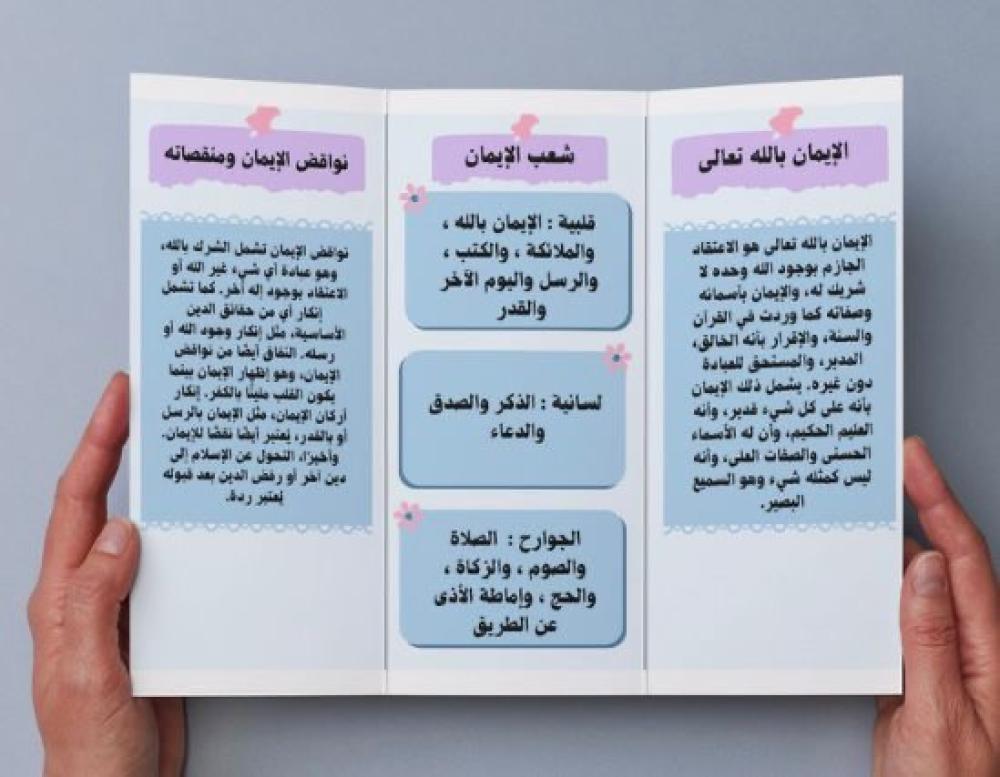 الإيمان بالله تعالى
الإيمان بالله تعالى هو الاعتقاد
الجازم بوجود الله وحده لا
شريك له، والإيمان بأسمائه
وصفاته كما وردت في القرآن
والسنة، والإقرار بأنه الخالق،
المدبر، والمستحق للعبادة
دون غيره. يشمل ذلك الإيمان
بأنه على كل شيء قدير، وأنه
العليم الحكيم، وأن له الأسماء
الحسنى والصفات العلى، وأنه
ليس كمثله شيء وهو السميع
البصير.
شعب الإيمان
قلبية : الإيمان بالله ،
والملائكة ، والكتب ،
والرسل واليوم الآخر
والقدر
لسانية : الذكر والصدق
والدعاء
الجوارح : الصلاة
والصوم ، والزكاة ،
والحج ، وإماطة الأذى
عن الطريق
نواقض الإيمان ومنقصاته
نواقض الإيمان تشمل الشرك بالله،
وهو عبادة أي شيء غير الله أو
الاعتقاد بوجود إله آخر. كما تشمل
إنكار أي من حقائق الدين
الأساسية، مثل إنكار وجود الله أو
رسله. النفاق أيضًا من نواقض
الإيمان، وهو إظهار الإيمان بينما
يكون القلب مليئًا بالكفر. إنكار
أركان الإيمان، مثل الإيمان بالرسل
أو بالقدر، يُعتبر أيضًا نقضًا للإيمان.
وأخيرًا، التحول عن الإسلام إلى
دين آخر أو رفض الدين بعد قبوله
يُعتبر ردة.